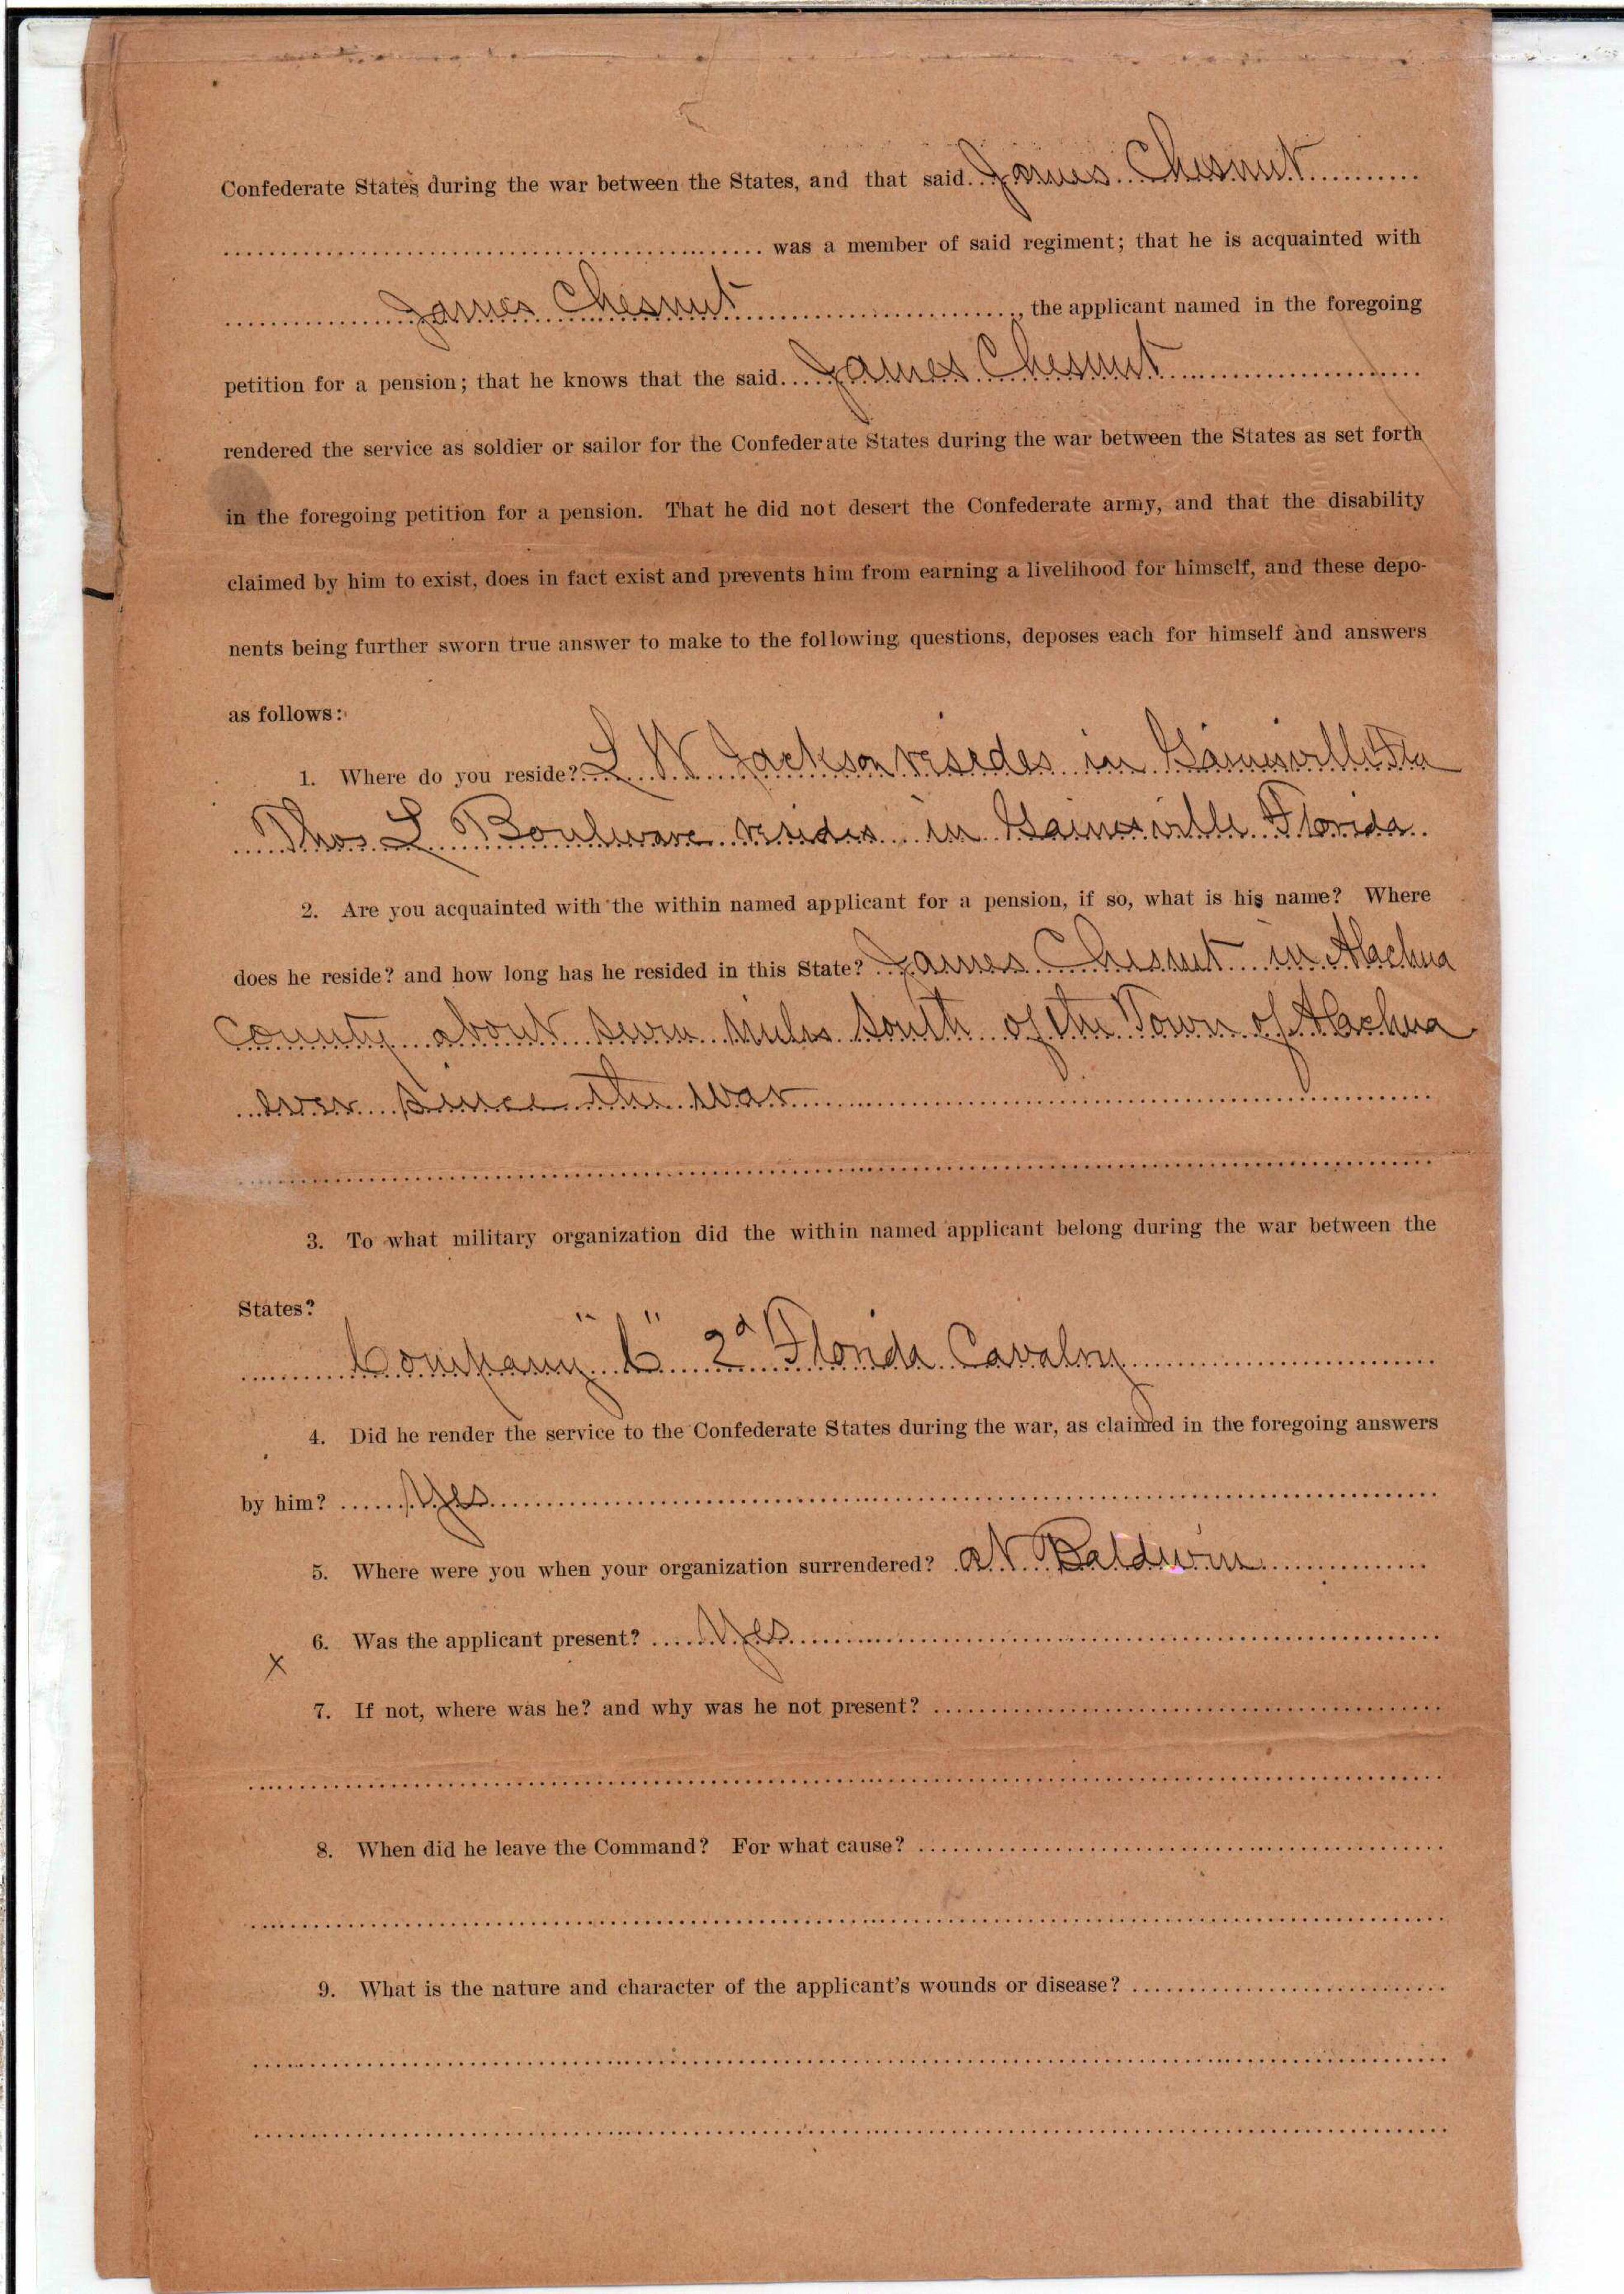 Confederate States during the war between the States, and that said James Chesnut
was a member of said regiment; that he is acquainted with
James Chesnut, the applicant named in the foregoing
petition for a pension; that he knows that the said James Chesnut
rendered the service as soldier or sailor for the Confederate States during the war between the States as set forth
in the foregoing petition for a pension. That he did not desert the Confederate army, and that the disability
claimed by him to exist, does in fact exist and prevents him from earning a livelihood for himself, and these depo-
nents being further sworn true answer to make to the following questions, deposes each for himself and answers
as follows:
1. Where do you reside? L W Jackson resides in Gainesville Fla
Thos L Boulware resides in Gainesville Florida
2. Are you acquainted with the within named applicant for a pension, if so, what is his name? Where
does he reside? and how long has he resided in this State? James Chesnut in Alachua
County about seven miles South of the Town of Alachua
ever since the war
3. To what military organization did the within named applicant belong during the war between the
States?
Company "C" 2d Florida Cavalry
4. Did he render the service to the Confederate States during the war, as claimed in the foregoing answers
by him? Yes
5. Where were you when your organization surrendered? at Baldwin
6. Was the applicant present? Yes
x
7. If not, where was he? and why was he not present?
8. When did he leave the Command? For what cause?
9. What is the nature and character of the applicant's wounds or disease?